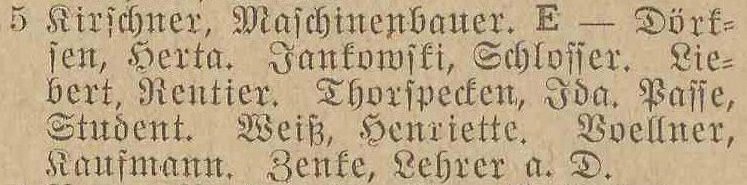 5 Kirschner, Maschinenbauer. E — Dörk-
sen, Herta. Jankowski, Schlosser. Lie-
bert, Rentier. Thorspecken, Ida. Passe,
Student. Weiß, Henriette. Voellner,
Kaufmann. Zenke, Lehrer a. D.